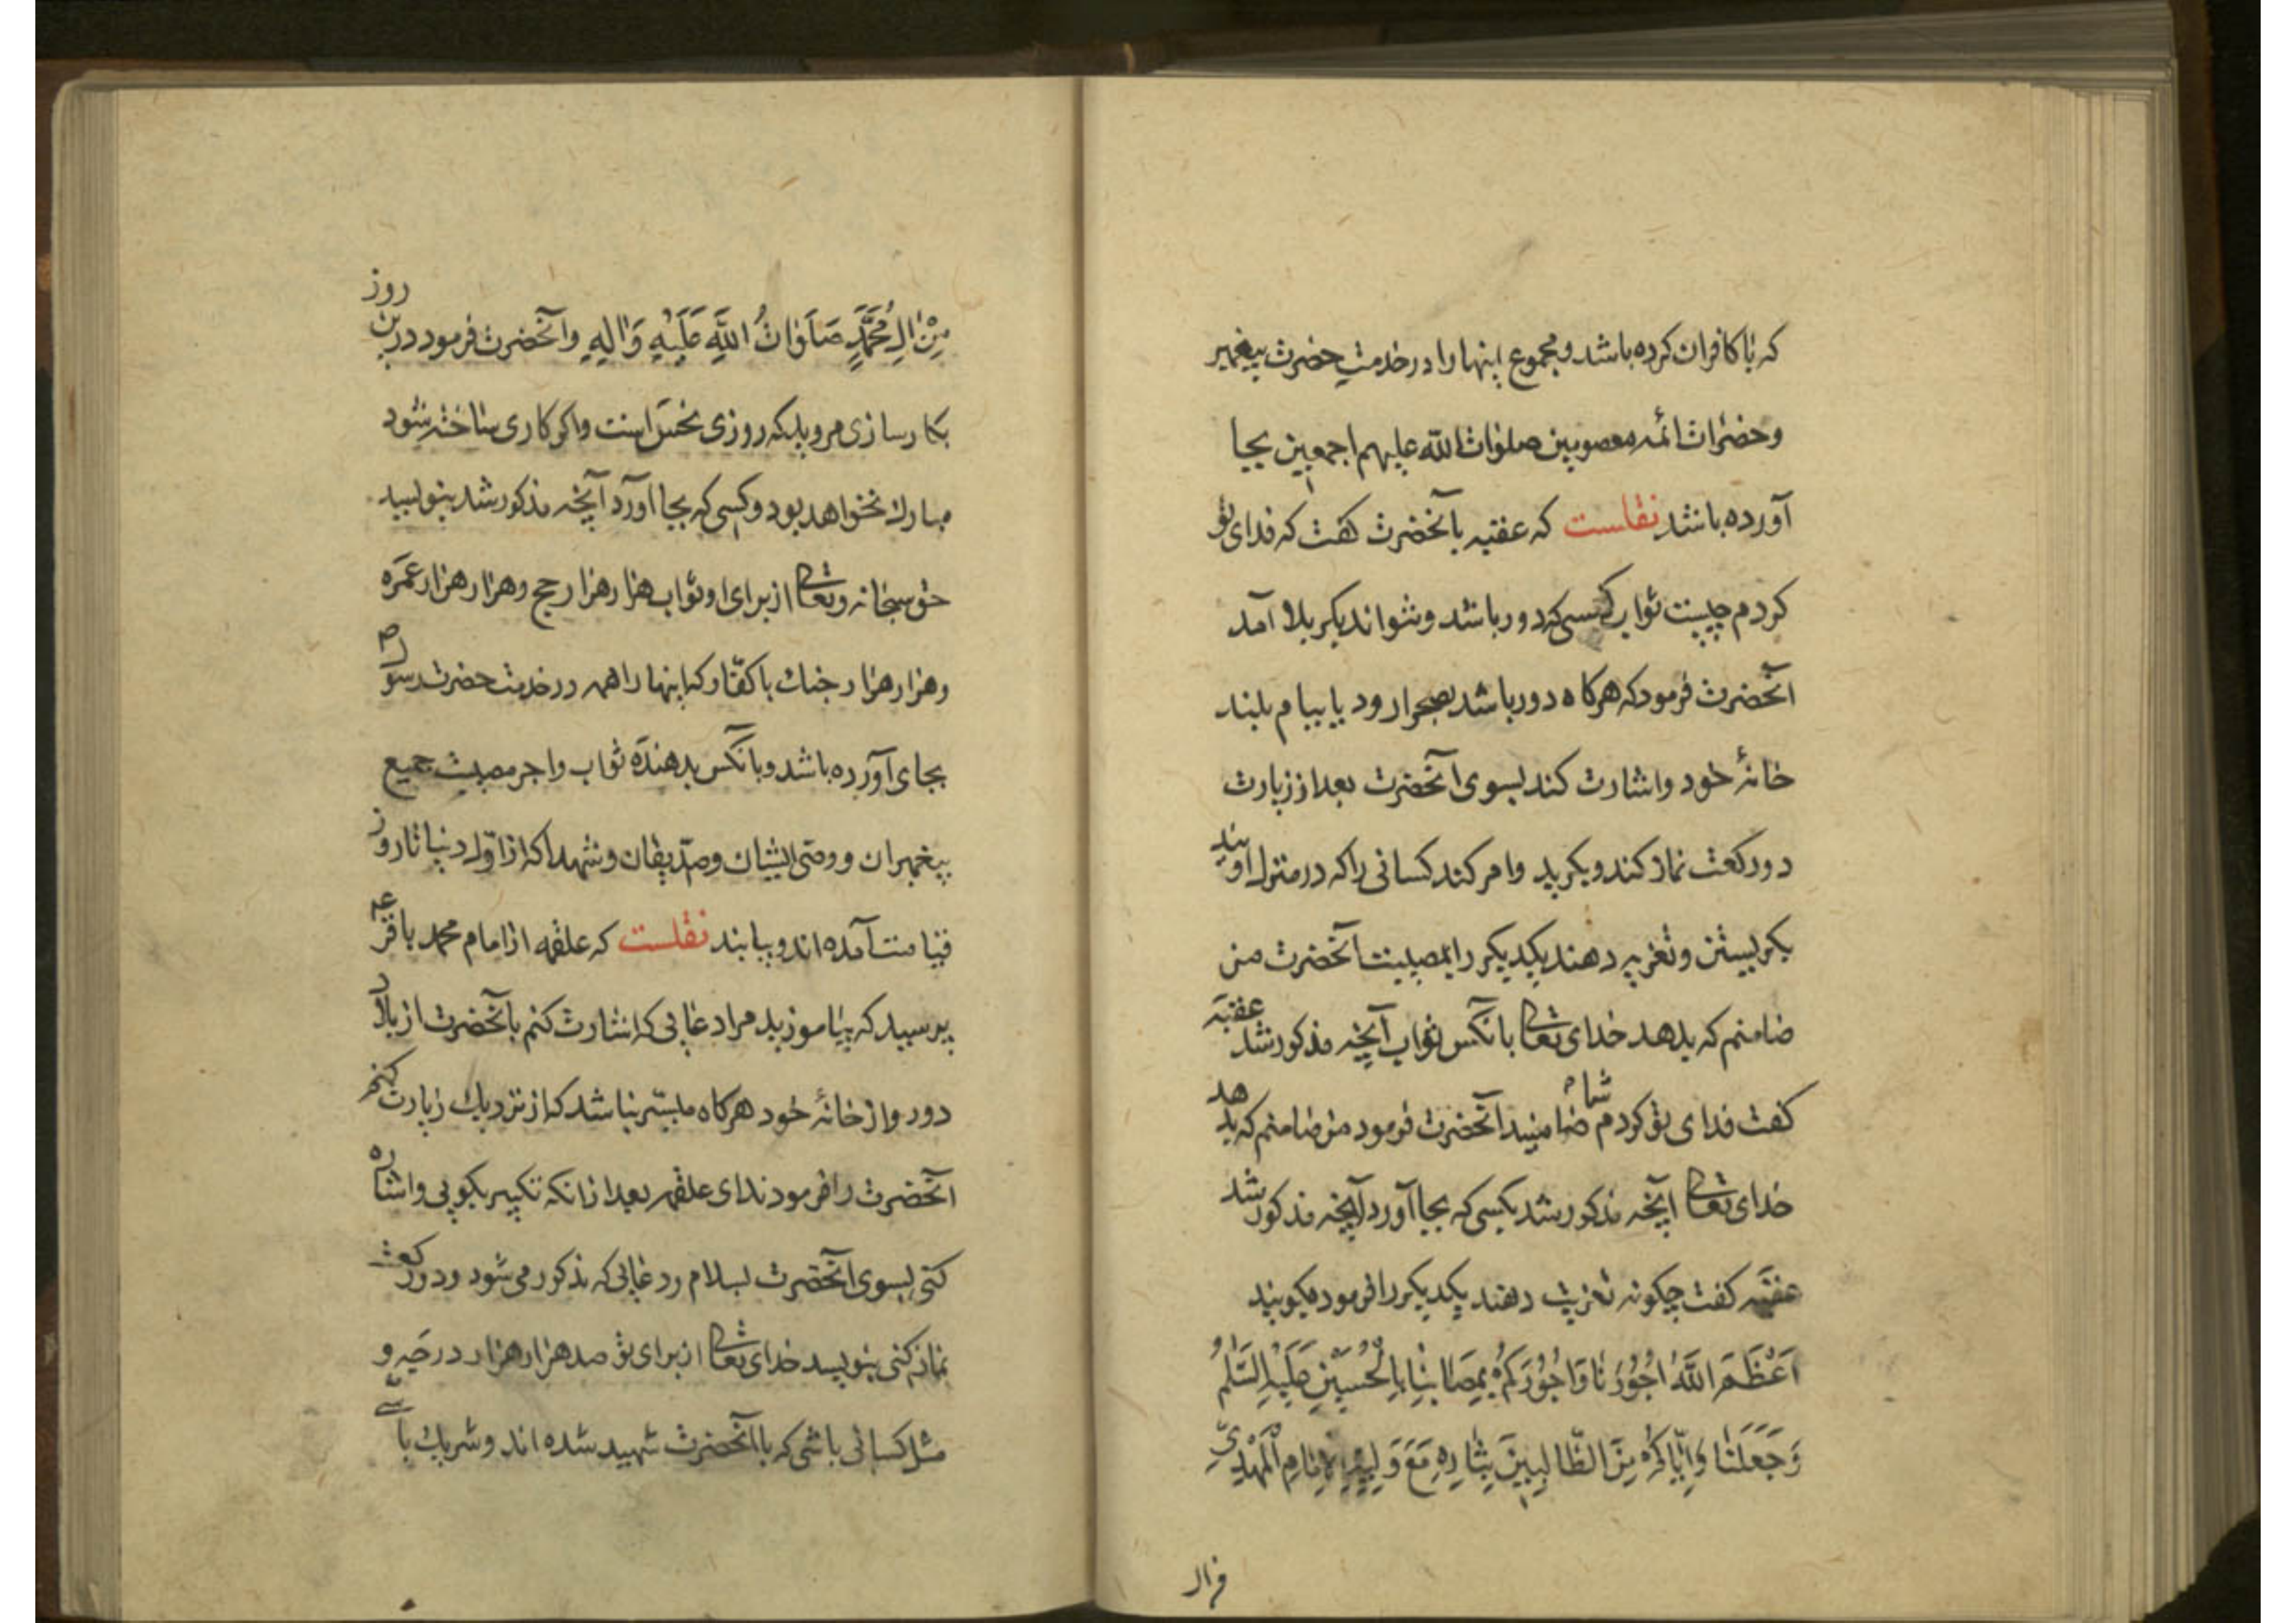 که با کافران کرده باشد و مجموع اینها را در خدمت حضرت پیغمبر
و حضرات ائمه معصومین صلوات الله علیهم اجمعین بجا
آورده باشد نقلست که عقبه بآنحضرت گفت که فدای تو
کردم چیست ثواب کسی که دور باشد و نتواند بکربلا آمد
آنحضرت فرمود که هرکاه دور باشد بصحرا رود یا ببام بلند
خانهٔ خود و اشارت کند بسوی آنحضرت بعد از زیارت
دو رکعت نماز کند و بکرید و امر کند کسانی را که در منزل اویند
بکریستن و تعزیه دهند یکدیکر را بمصیبت آنحضرت من
ضامنم که بدهد خدای تعالی بآنکس ثواب آنچه مذکور شد عقبه
کفت فدای تو کردم شما ضامنید آنحضرت فرمود من ضامنم که بدهد
خدای تعالی آنچه مذکور شد بکسی که بجا آورد آنچه مذکور شد
عقبه کفت چکونه تعزیت دهند یکدیکر را فرمود میکویند
اَعْظَمَ اللَّهُ اُجُورَنَا وَاُجُورَكُمْ بِمُصَابِنَا بِالْحُسَيْنِ عَلَيْهِ السَّلٰمُ
وَجَعَلَنَا وَاِيَّاكُمْ مِنَ الطَّالِبِينَ بِثَارِهِ مَعَ وَلِيِّهِ الْاِمَامِ الْمَهْدِيِّ
مِنْ اٰلِ مُحَمَّدٍ صَلَوَاتُ اللَّهِ عَلَيْهِ وَاٰلِهِ و آنحضرت فرمود درین روز
بکارسازی مرو بلکه روزی نحس است و اکر کاری ساخته شود
مبارك نخواهد بود و کسی که بجا آورد آنچه مذکور شد بنویسید
حق سبحانه و تعالی از برای او ثواب هزار هزار حج و هزار هزار عمره
و هزار هزار جنك با کفّار که اینها را همه در خدمت حضرت رسول ص
بجای آورده باشد و بآنکس بدهند ثواب و اجر مصیبت جمیع
پیغمبران و وصی ایشان و صدّیقان و شهدا که از اوّل دنیا تا روز
قیامت آمده اند و بیایند نقلست که علقمه از امام محمد باقر ع
پرسید که بیاموزید مرا دعایی که اشارت کنم بآنحضرت از بلاد
دور و از خانهٔ خود هرکاه میسّر نباشد که از نزدیك زیارت کنم
آنحضرت را فرمودند ای علقمه بعد از آنکه تکبیر بکویی و اشاره
کنی بسوی آنحضرت بسلام و دعایی که مذکور می شود و دو رکعت
نماز کنی بنویسد خدای تعالی از برای تو صد هزار هزار درجه و
مثل کسانی باشی که با آنحضرت شهید شده اند و شریك باشی